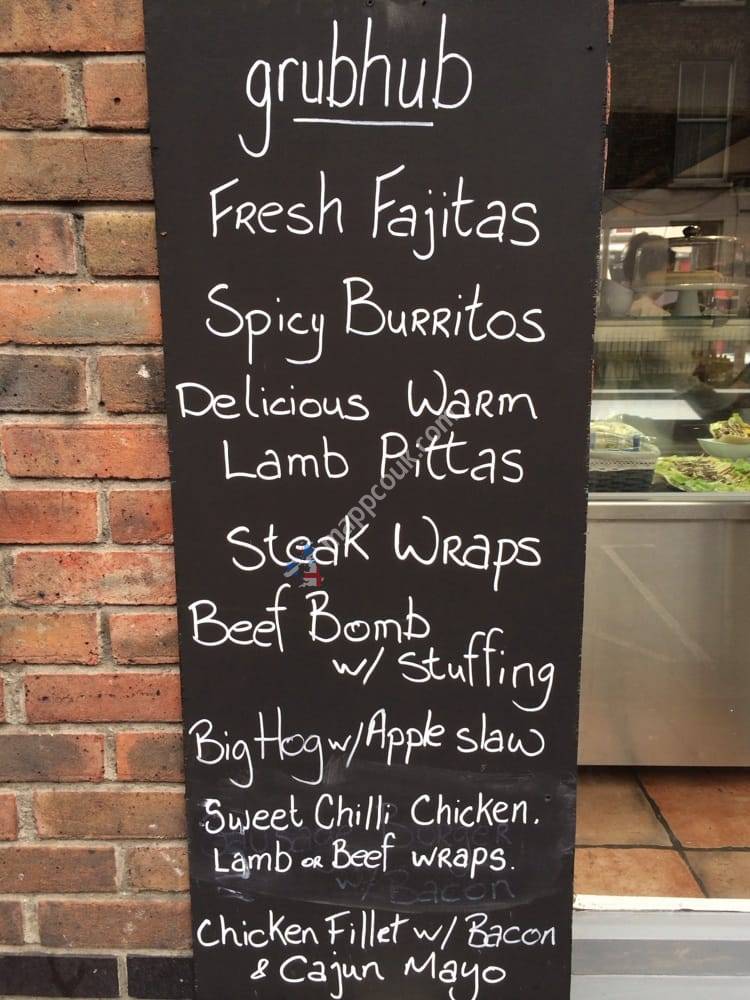 grubhub
Fresh Fajitas
Spicy Burritos
Delicious Warm
Lamb Pittas
mappcouk.com
Steak Wraps
Beef Bomb
w/ Stuffing
Big Hog w/ Apple slaw
Sweet Chilli Chicken.
Lamb or Beef wraps.
w/ Bacon
Chicken Fillet w/ Bacon
& Cajun Mayo